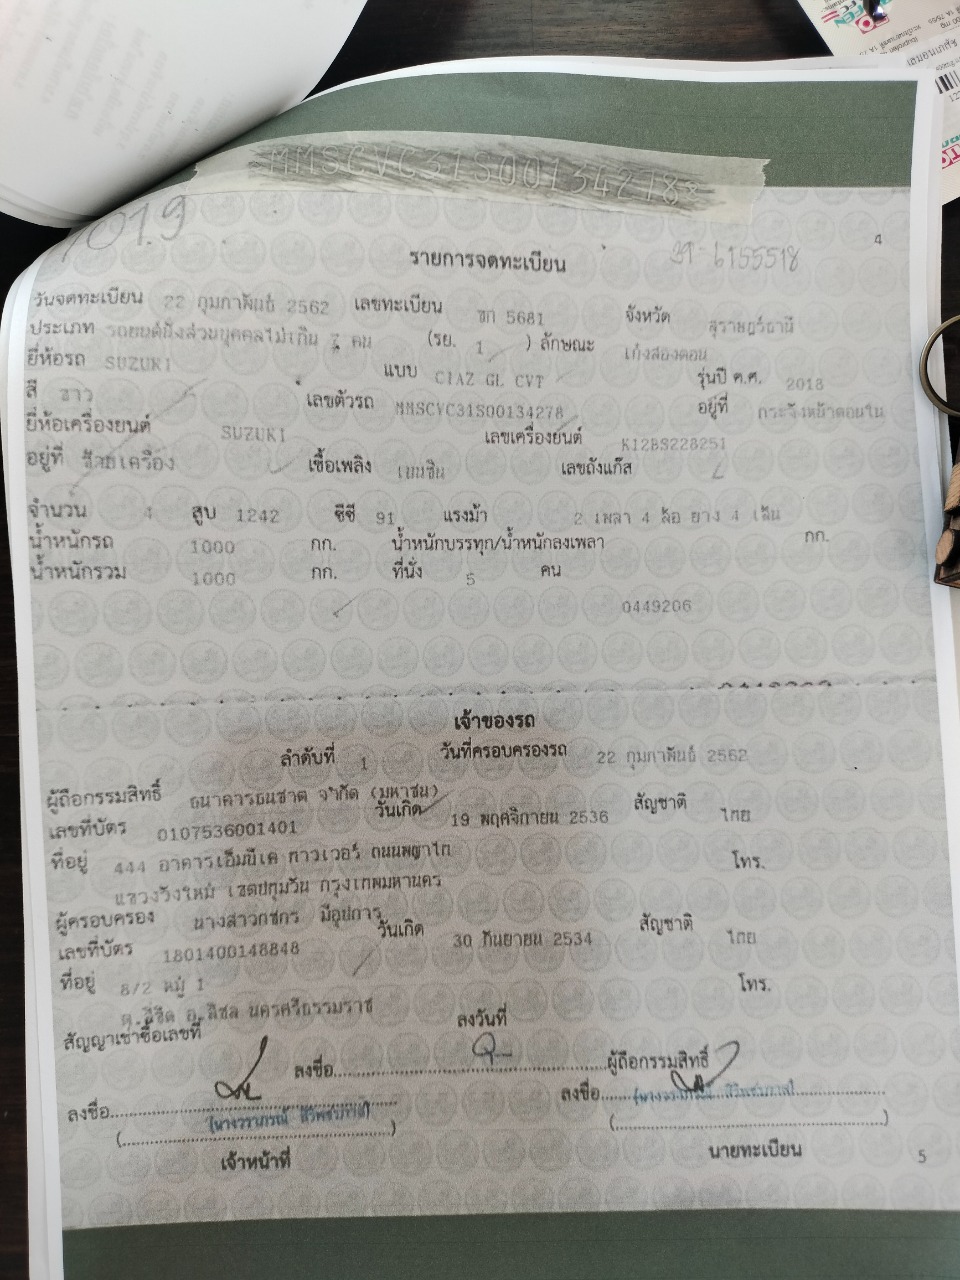 *MMSCVC31S00134278*
7019
4
รายการจดทะเบียน
31-6155518
วันจดทะเบียน 22 กุมภาพันธ์ 2562 เลขทะเบียน ขก 5681 จังหวัด สุราษฎร์ธานี
ประเภท รถยนต์นั่งส่วนบุคคลไม่เกิน 7 คน (รย. 1 ) ลักษณะ เก๋งสองตอน
ยี่ห้อรถ SUZUKI แบบ CIAZ GL CVT รุ่นปี ค.ศ. 2018
สี ขาว เลขตัวรถ MMSCVC31S00134278 อยู่ที่ กระจังหน้าตอนใน
ยี่ห้อเครื่องยนต์ SUZUKI เลขเครื่องยนต์ K12BS228251
อยู่ที่ ซ้ายเครื่อง เชื้อเพลิง เบนซิน เลขถังแก๊ส
จำนวน 4 สูบ 1242 ซีซี 91 แรงม้า 2 เพลา 4 ล้อ ยาง 4 เส้น
น้ำหนักรถ 1000 กก. น้ำหนักบรรทุก/น้ำหนักลงเพลา กก.
น้ำหนักรวม 1000 กก. ที่นั่ง 5 คน
0449206
เจ้าของรถ
ลำดับที่ 1 วันที่ครอบครองรถ 22 กุมภาพันธ์ 2562
ผู้ถือกรรมสิทธิ์ ธนาคารธนชาต จำกัด (มหาชน)
เลขที่บัตร 0107536001401 วันเกิด 19 พฤศจิกายน 2536 สัญชาติ ไทย
ที่อยู่ 444 อาคารเอ็มบีเค ทาวเวอร์ ถนนพญาไท โทร.
แขวงวังใหม่ เขตปทุมวัน กรุงเทพมหานคร
ผู้ครอบครอง นางสาวกชกร มีอุปการ
เลขที่บัตร 1801400148848 วันเกิด 30 กันยายน 2534 สัญชาติ ไทย
ที่อยู่ 8/2 หมู่ 1 โทร.
ต.สิชล อ.สิชล นครศรีธรรมราช
สัญญาเช่าซื้อเลขที่ ลงวันที่
ลงชื่อ ผู้ถือกรรมสิทธิ์
ลงชื่อ ลงชื่อ
เจ้าหน้าที่ นายทะเบียน
5